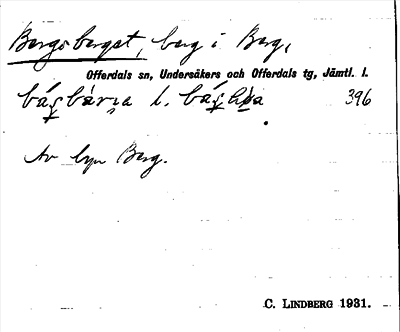 Bergsberget, berg i Berg,
Offerdals sn, Undersåkers och Offerdals tg, Jämtl. l.
l. 396
Av byn Berg.
C. LINDBERG 1931.